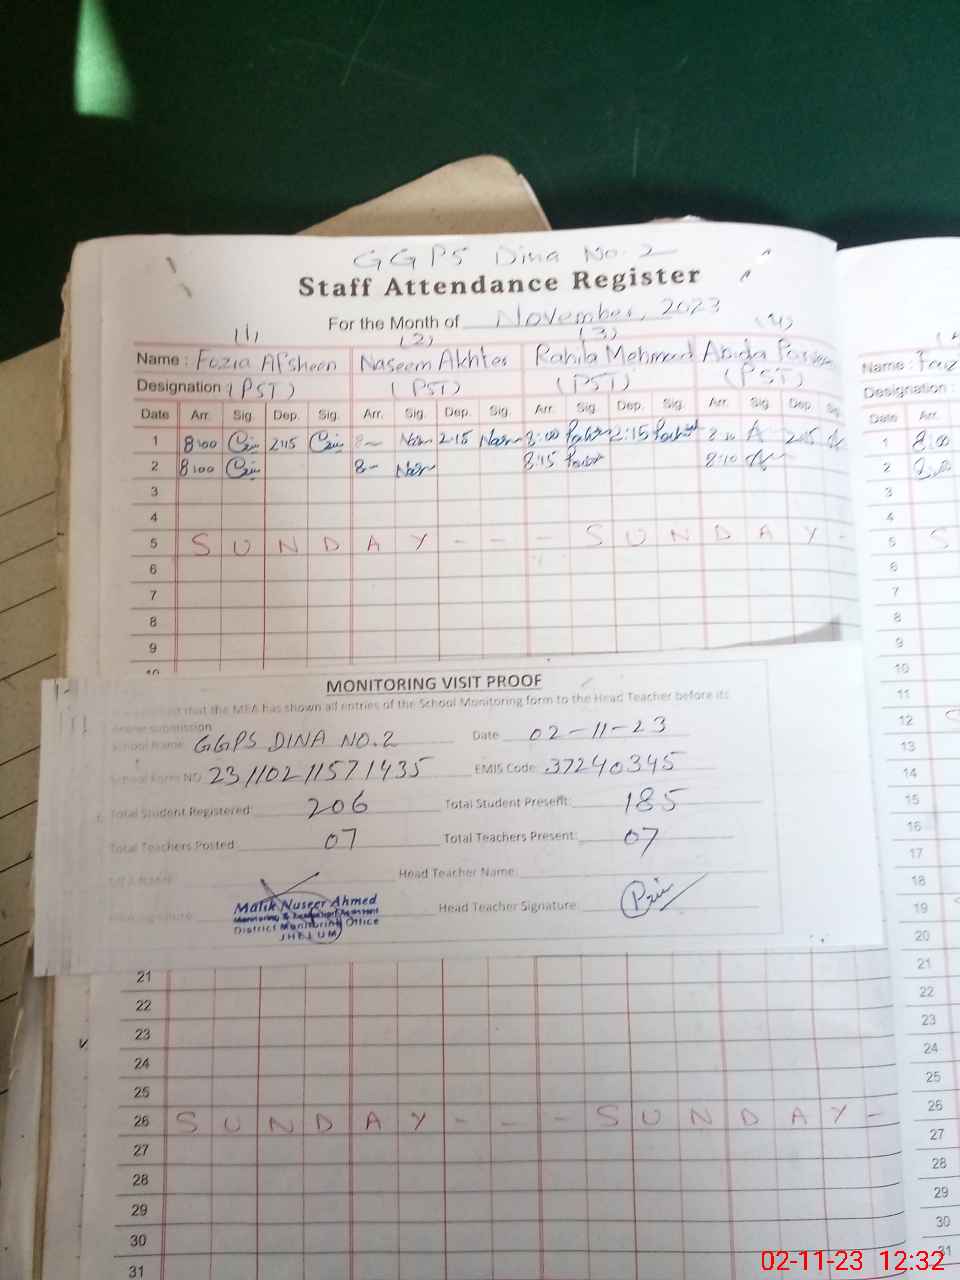 GGPS Dina No. 2
Staff Attendance Register
For the Month of November, 2023
(1) (2) (3) (4)
Name : Fozia Afsheen Naseem Akhter Rahila Mehmood Abida Parveen
Designation : (PST) (PST) (PST) (PST)
Date Arr. Sig. Dep. Sig. Arr. Sig. Dep. Sig. Arr. Sig. Dep. Sig. Arr. Sig. Dep. Sig.
1 8:00 2:15 8- 2:15 8:00 2:15 8:10 A 2:15
2 8:00 8- 8:15 8:10
3
4
5 S U N D A Y - - - S U N D A Y -
6
7
8
9
10
MONITORING VISIT PROOF
that the MEA has shown all entries of the School Monitoring form to the Head Teacher before its
submission
School Name GGPS DINA NO.2 Date 02-11-23
School Form NO 23110211571435 EMIS Code: 37240345
Total Student Registered: 206 Total Student Present: 185
Total Teachers Posted 07 Total Teachers Present: 07
MEA Name Head Teacher Name
Head Teacher Signature:
Malik Nuseer Ahmed
Monitoring & Evaluation Assistant
District Monitoring Office
JHELUM
21
22
23
24
25
26 S U N D A Y - - - S U N D A Y -
27
28
29
30
31
Name :
Designation :
Date Arr.
1 8:00
2
3
4
5 S
6
7
8
9
10
11
12
13
14
15
16
17
18
19
20
21
22
23
24
25
26
27
28
29
30
31
02-11-23 12:32